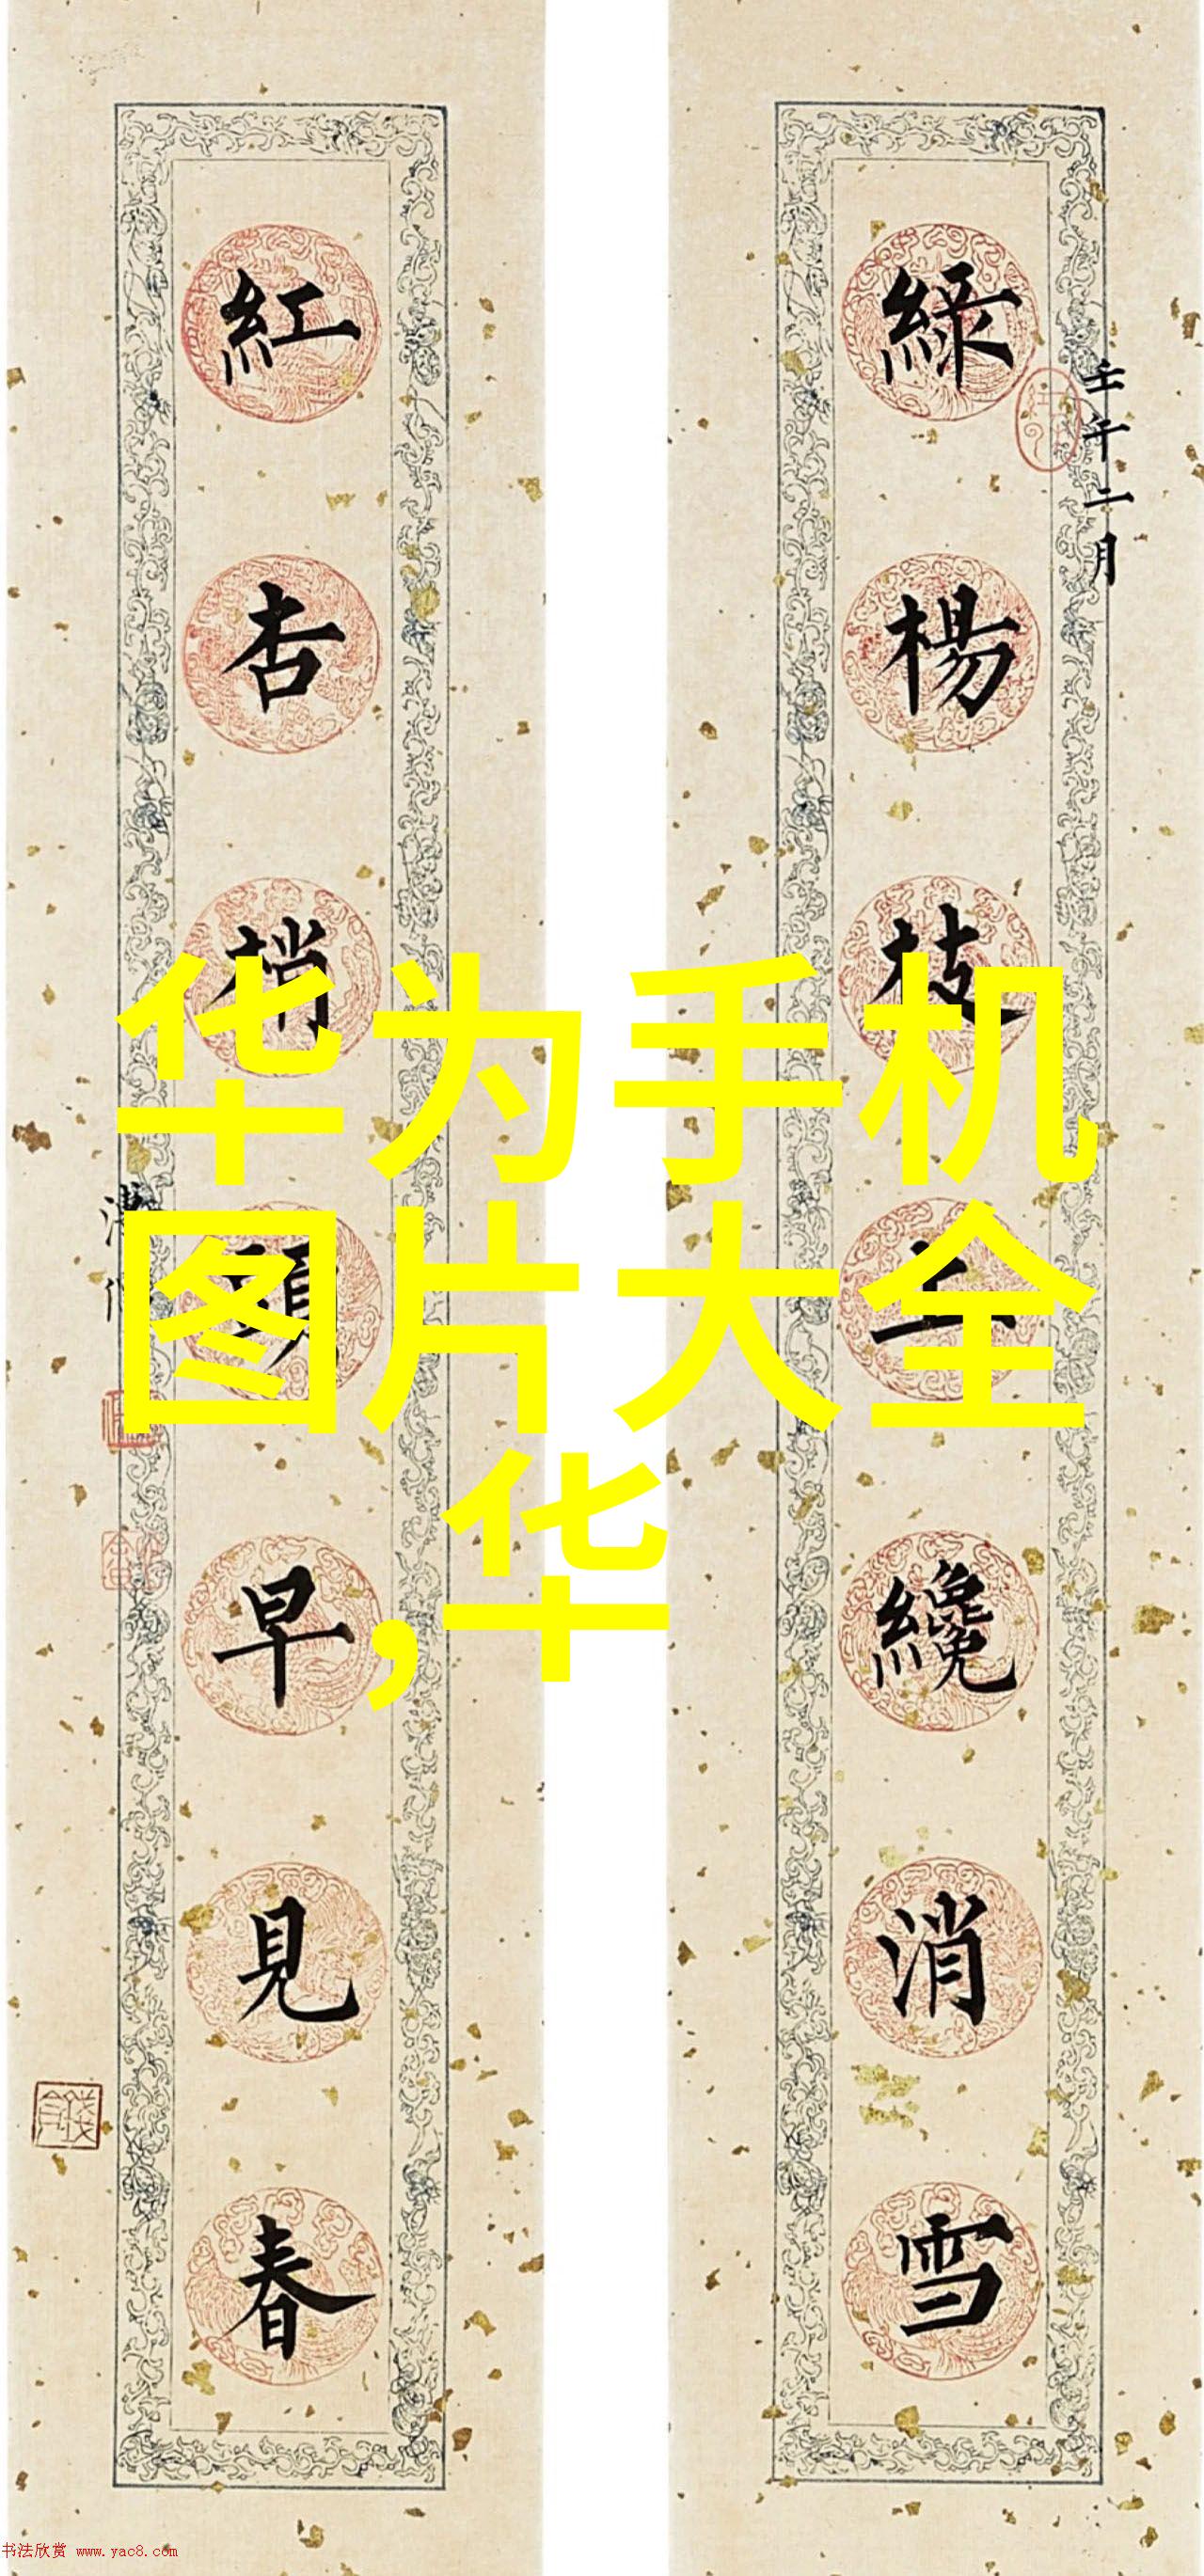 綠楊枝上纔消雪
壬午二月
紅杏梢頭早見春
溥
华为手机
图片大全
,华
书法欣赏 www.yac8.com